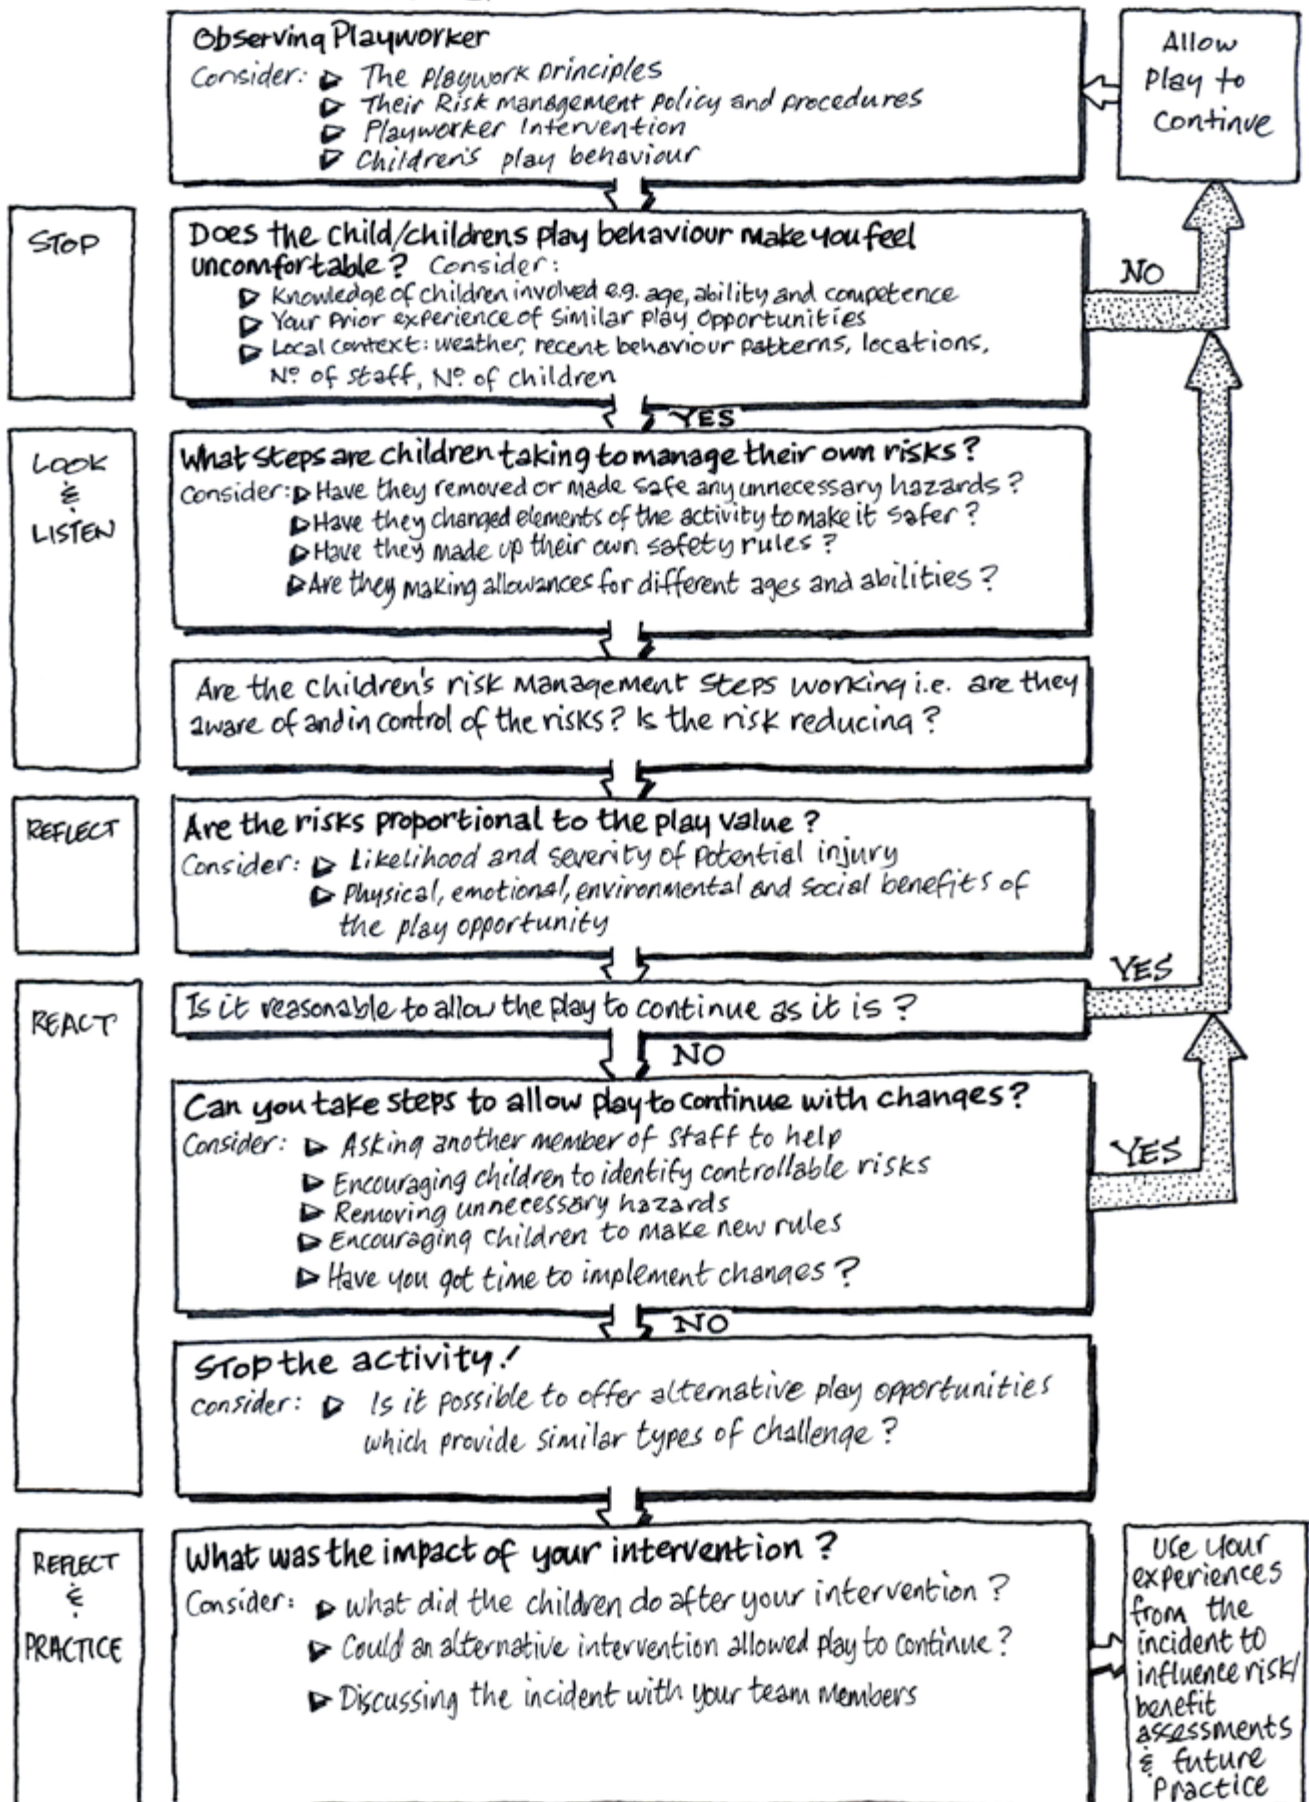 Observing Playworker
Consider: ▷ The Playwork Principles
▷ Their Risk management Policy and procedures
▷ Playworker Intervention
▷ Children's play behaviour
Allow
Play to
Continue
STOP
Does the child/childrens play behaviour make you feel
uncomfortable? Consider:
▷ Knowledge of children involved e.g. age, ability and competence
▷ Your Prior experience of similar play opportunities
▷ Local context: weather, recent behaviour patterns, locations,
Nº of staff, Nº of children
NO
YES
LOOK
&
LISTEN
What steps are children taking to manage their own risks?
Consider: ▷ Have they removed or made safe any unnecessary hazards?
▷ Have they changed elements of the activity to make it safer?
▷ Have they made up their own safety rules?
▷ Are they making allowances for different ages and abilities?
Are the children's risk management steps working i.e. are they
aware of and in control of the risks? Is the risk reducing?
REFLECT
Are the risks proportional to the play value?
Consider: ▷ Likelihood and severity of potential injury
▷ Physical, emotional, environmental and social benefits of
the play opportunity
REACT
Is it reasonable to allow the play to continue as it is?
YES
NO
Can you take steps to allow play to continue with changes?
Consider: ▷ Asking another member of staff to help
▷ Encouraging children to identify controllable risks
▷ Removing unnecessary hazards
▷ Encouraging children to make new rules
▷ Have you got time to implement changes?
YES
NO
STOP the activity!
consider: ▷ Is it possible to offer alternative play opportunities
which provide similar types of challenge?
REFLECT
&
PRACTICE
What was the impact of your intervention?
Consider: ▷ what did the children do after your intervention?
▷ Could an alternative intervention allowed play to continue?
▷ Discussing the incident with your team members
Use your
experiences
from the
incident to
influence risk/
benefit
assessments
& future
Practice